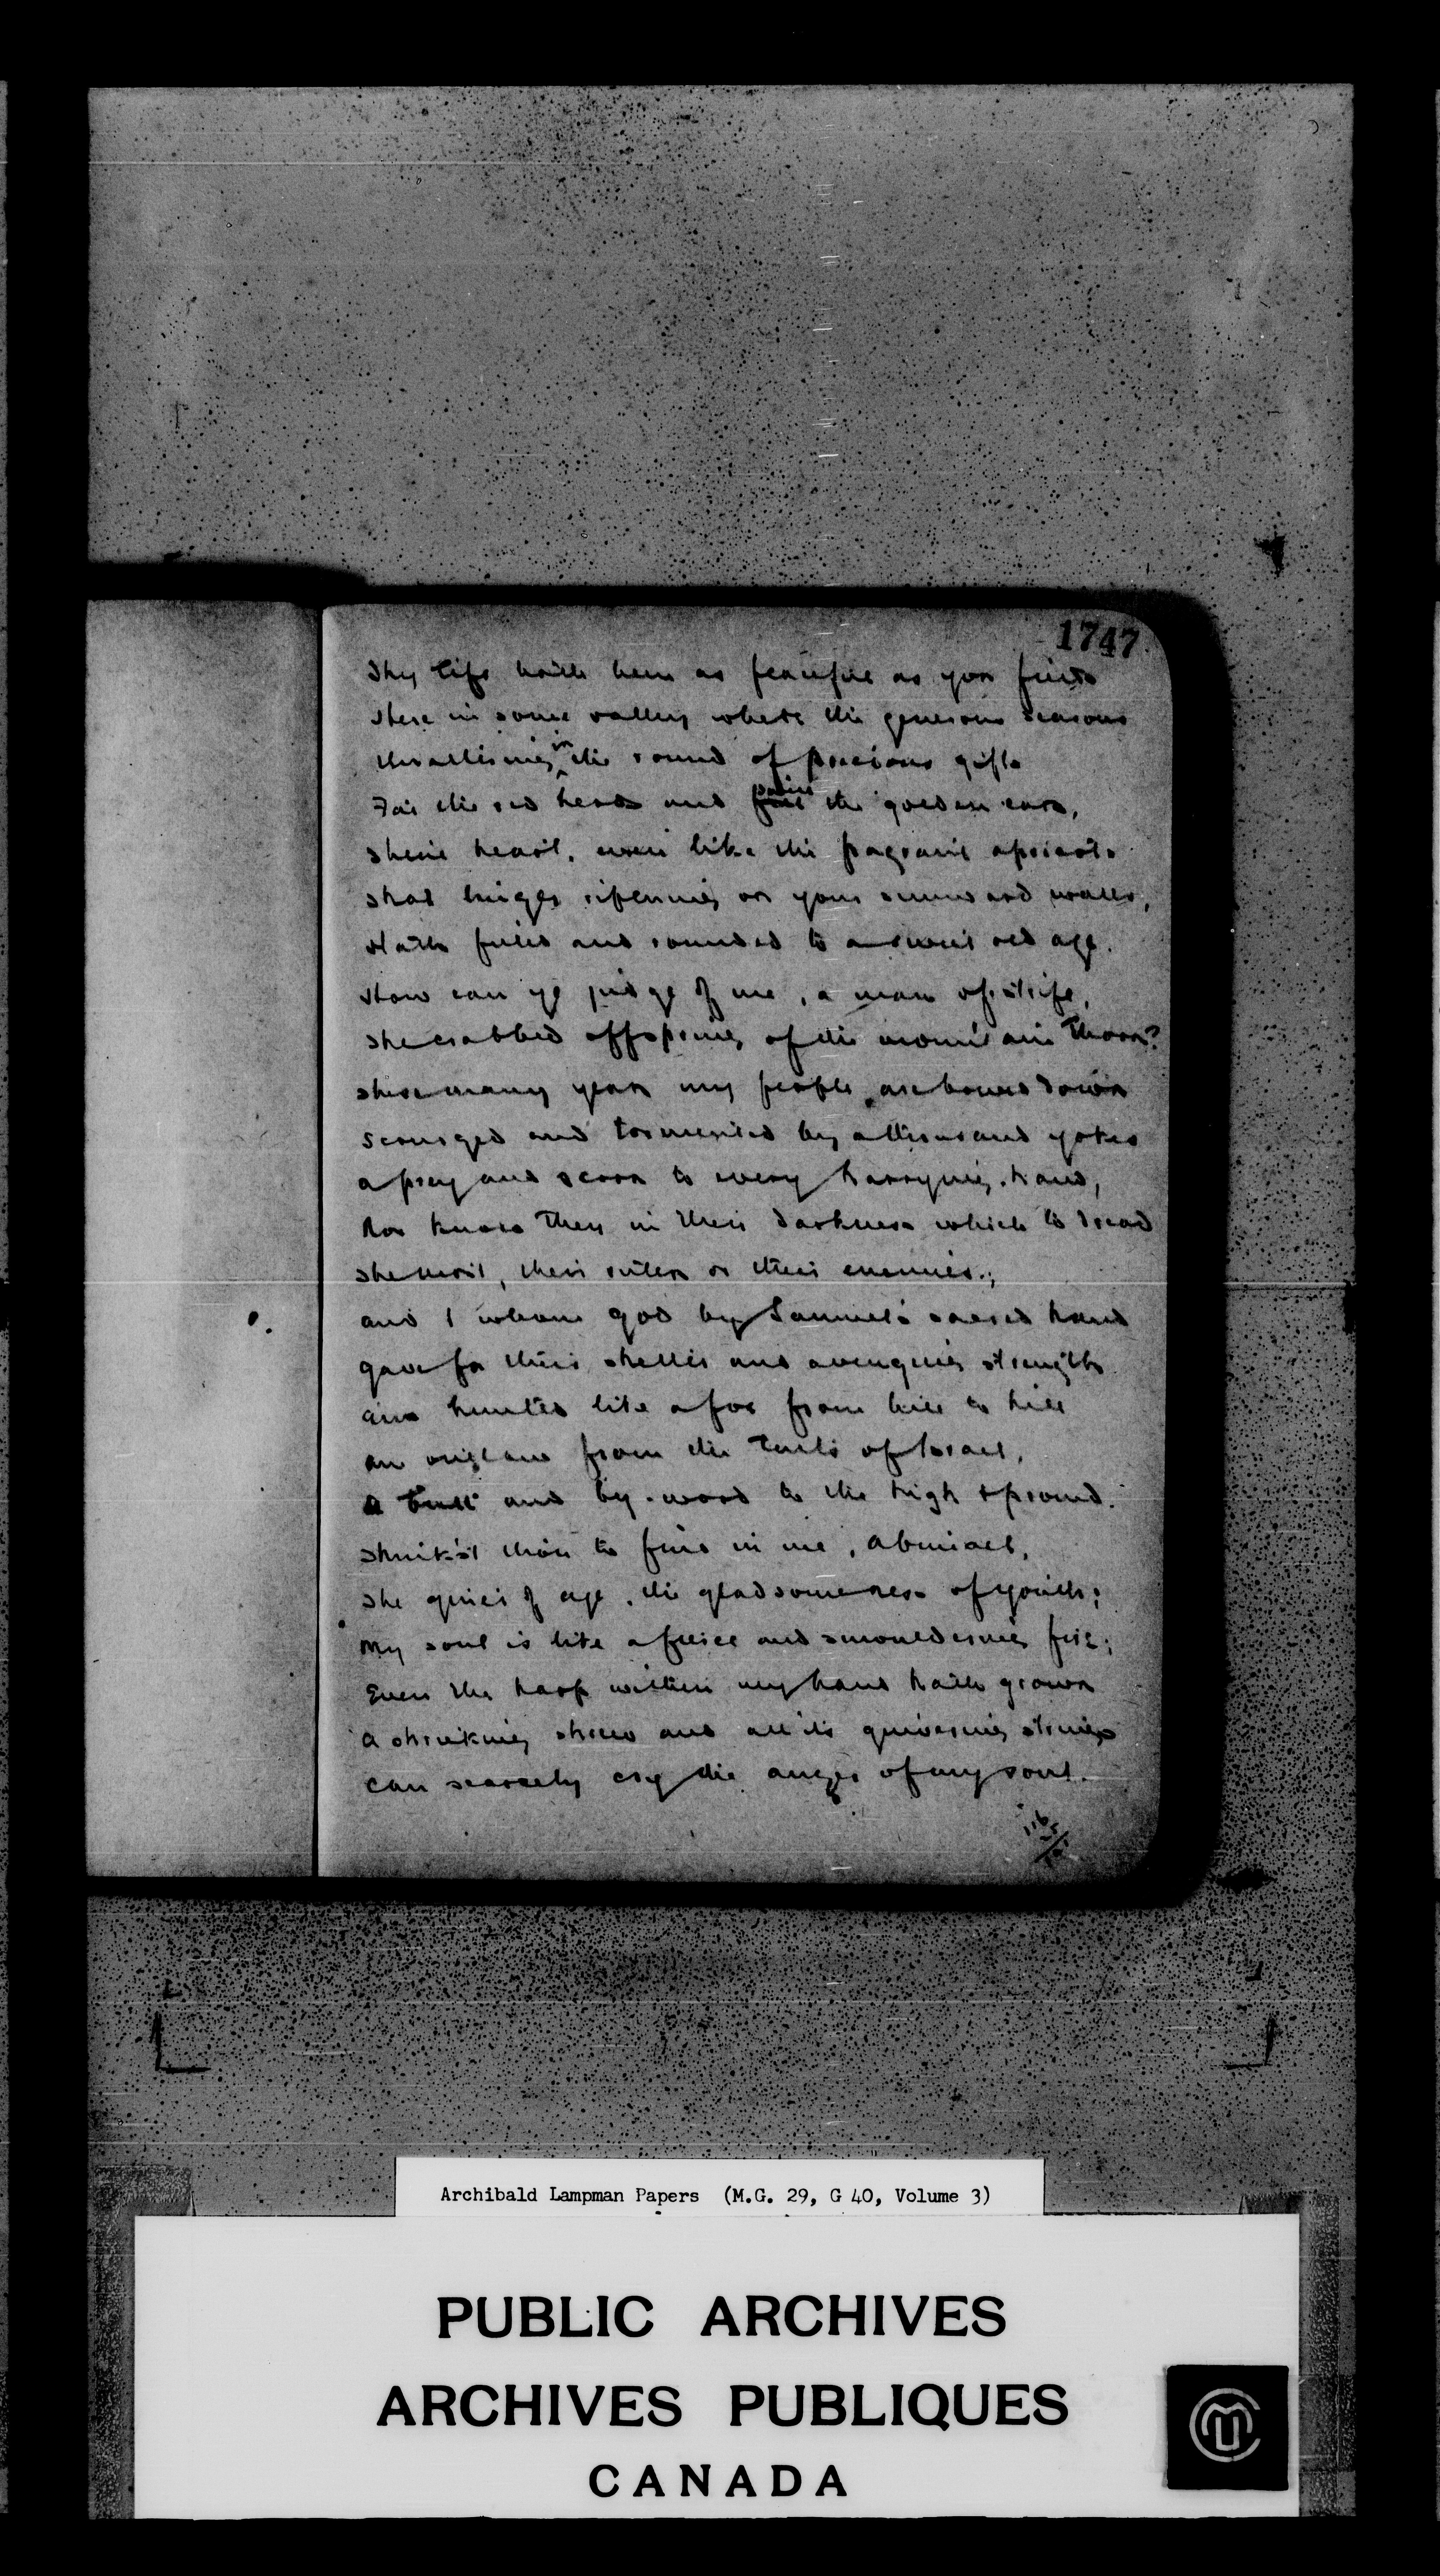 1747
Thy life hath been as peaceful as your fields
Here in some valley where the generous seasons
Unaltering in the round of precious gifts
the red herds and the golden ears,
Thine heart, even like the fragrant apricots
That linger ripening on your sunward walls,
Hath filled and rounded to a sweet old age.
How can ye judge of me, a man of strife,
The crabbed offspring of the mountain thorn?
These many years my people are bowed down
Scourged and tormented by a thousand yokes
a prey and scorn to every harrying hand,
Nor know they in their darkness which to dread
The most, their rulers or their enemies;
and I whom god by Samuel's sacred hand
gave for their shelter and avenging strength
am hunted like a fox from hill to hill
an outlaw from the tents of Israel,
a butt and by-word to the high & proud.
Think'st thou to find in me, Abimael,
The quiet of age, the gladsomeness of youth;
My soul is like a fierce and smouldering fire;
Even the harp within my hand hath grown
A shrieking shrew and all its quivering strings
can scarcely cry the anger of my soul.
Archibald Lampman Papers (M.G. 29, G 40, Volume 3)
PUBLIC ARCHIVES
ARCHIVES PUBLIQUES
CANADA